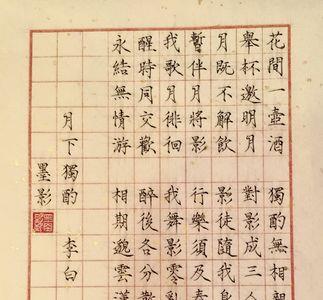 花間一壺酒 獨酌無相親
舉杯邀明月 對影成三人
月既不解飲 影徒隨我身
暫伴月將影 行樂須及春
我歌月徘徊 我舞影零亂
醒時同交歡 醉後各分散
永結無情游 相期邈雲漢
月下獨酌 李白
墨影